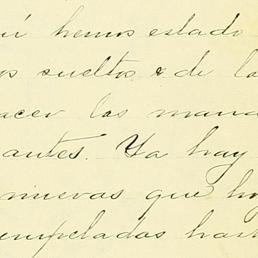 hemos estado
os sueltos & de la
acer las mana
antes. Ya hay
nuevas que ha
empeladas has